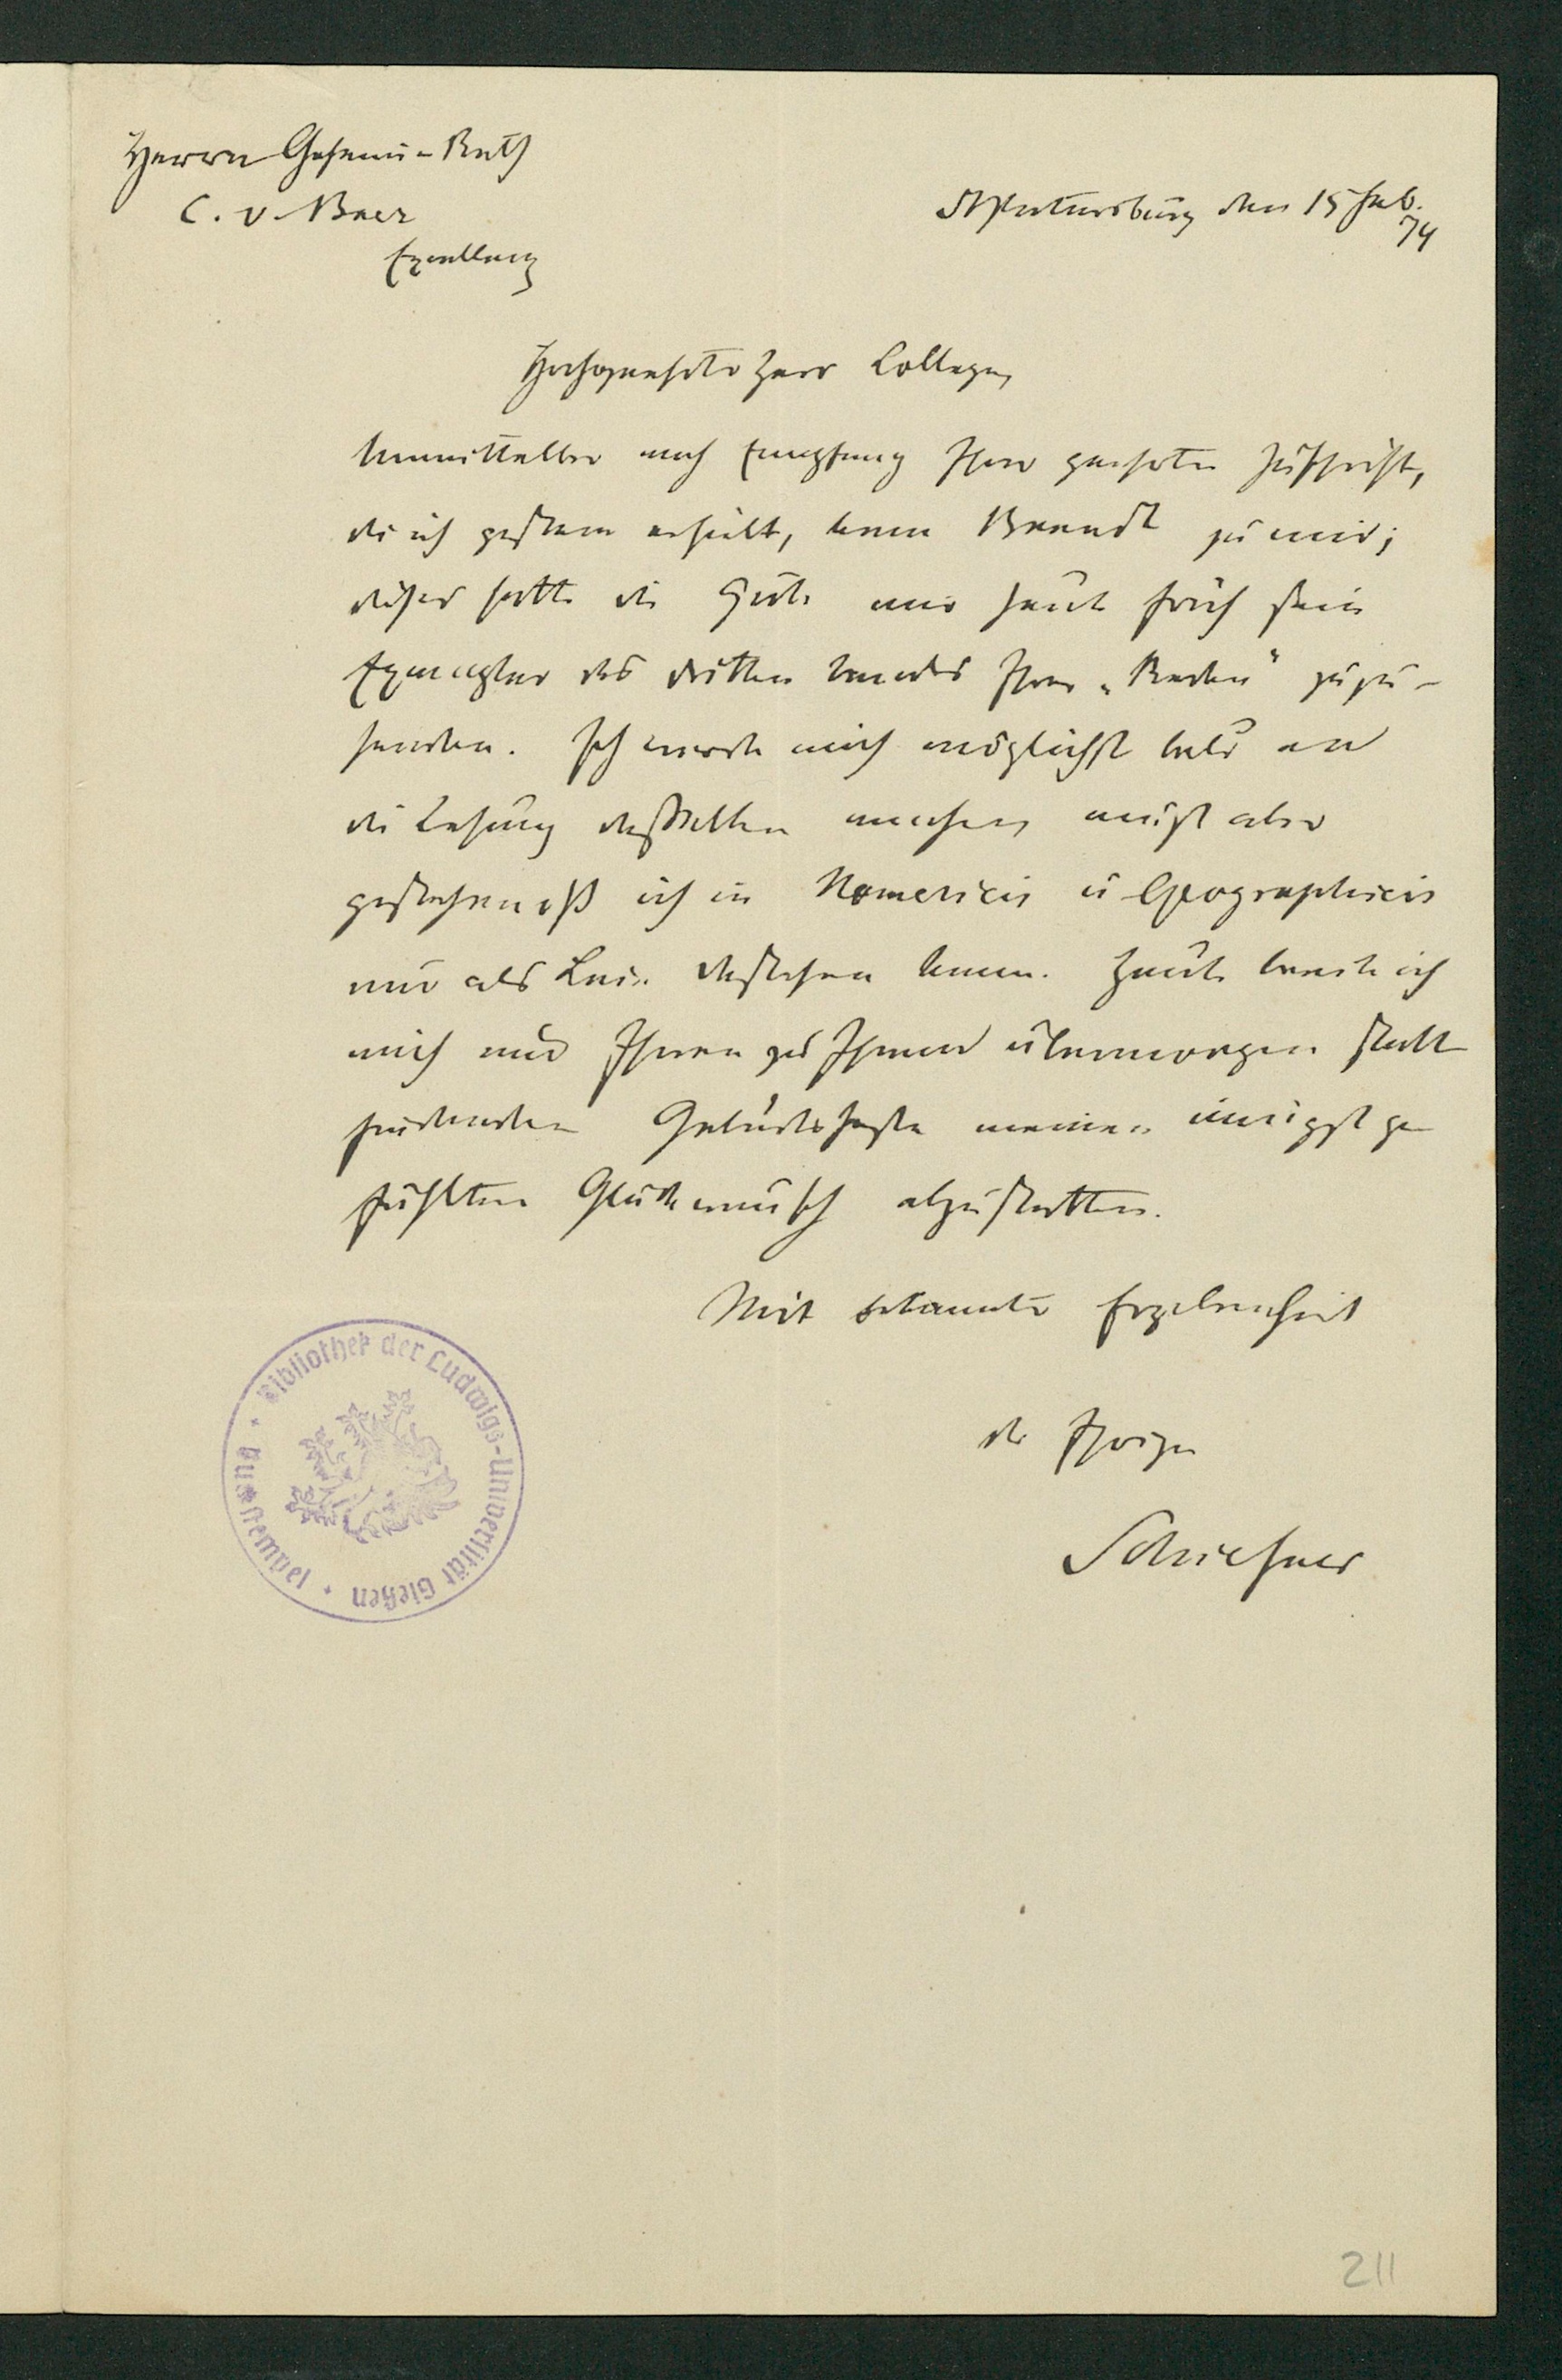 Herrn Geheim-Rath
C. v. Baer
Excellenz
St Petersburg den 15 Feb.
74
Hochgeehrter Herr College,
Unmittelbar nach Empfang Ihrer geehrten Zuschrift,
die ich gestern erhielt, kam Brandt zu mir;
dieser hatte die Güte mir heute früh sein
Exemplar des dritten Bandes Ihrer „Reden“ zuzu-
senden. Ich werde mich möglichst bald an
die Lesung desselben machen, muß aber
gestehen, daß ich in Homericis u Geographicis
nur als Laie dastehen kann. Heute beeile ich
mich nur Ihnen zu Ihrem übermorgen statt
findenden Geburtsfeste meinen innigst ge
fühlten Glückwunsch abzustatten.
Mit bekannter Ergebenheit
der Ihrige
Schiefner
Bibliothek der Ludwigs-Universität Gießen
211